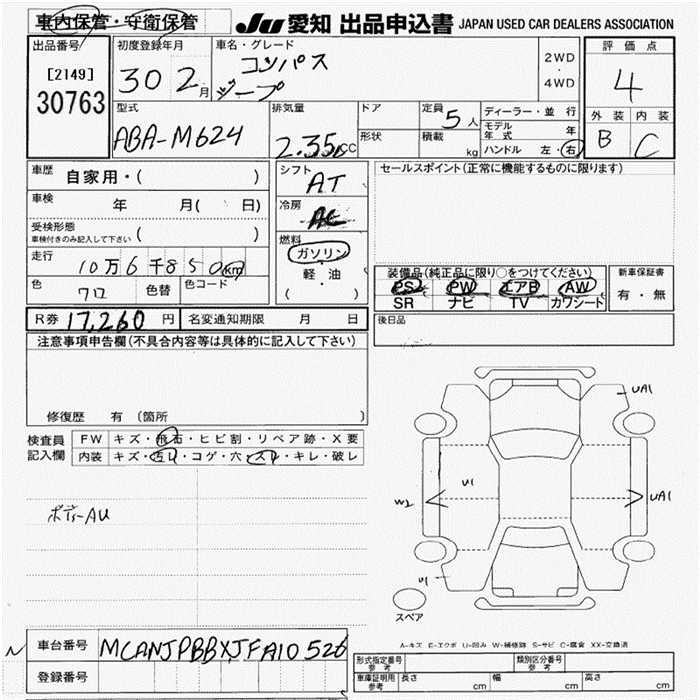 車内保管・守衛保管
JU 愛知 出品申込書 JAPAN USED CAR DEALERS ASSOCIATION
出品番号
[2149]
30763
初度登録年月
30 2月
車名・グレード
コンパス
ジープ
2WD
・
4WD
評価点
4
外装 内装
B C
型式
ABA-M624
排気量
2.35 CC
ドア
形状
定員
5人
積載
kg
ディーラー・並行
モデル年式 年
ハンドル 左・右
車歴
自家用・( )
車検
年 月( 日)
受検形態
車検付きのみ記入して下さい ( )
走行
10万6千850km
色
クロ
色替
色コード
シフト
AT
冷房
AC
燃料
ガソリン
軽・油
( )
セールスポイント(正常に機能するものに限ります)
装備品(純正品に限り○をつけてください)
PS PW エアB AW
SR ナビ TV カワシート
新車保証書
有・無
R券 17,260 円
名変通知期限 月 日
後日品
注意事項申告欄(不具合内容等は具体的に記入して下さい)
修復歴 有 (箇所 )
検査員
記入欄
FW キズ・飛石・ヒビ割・リペア跡・X要
内装 キズ・汚レ・コゲ・穴・スレ・キレ・破レ
ボディ-AU
UA1
U1
W2
UA1
U1
スペア
A-キズ E-エクボ U-凹み W-補修跡 S-サビ C-腐食 XX-交換済
車台番号 MCANJPBBXJFA10526
登録番号
形式指定番号
参考
類別区分番号
参考
車庫証明用
参考
長さ cm 幅 cm 高さ cm